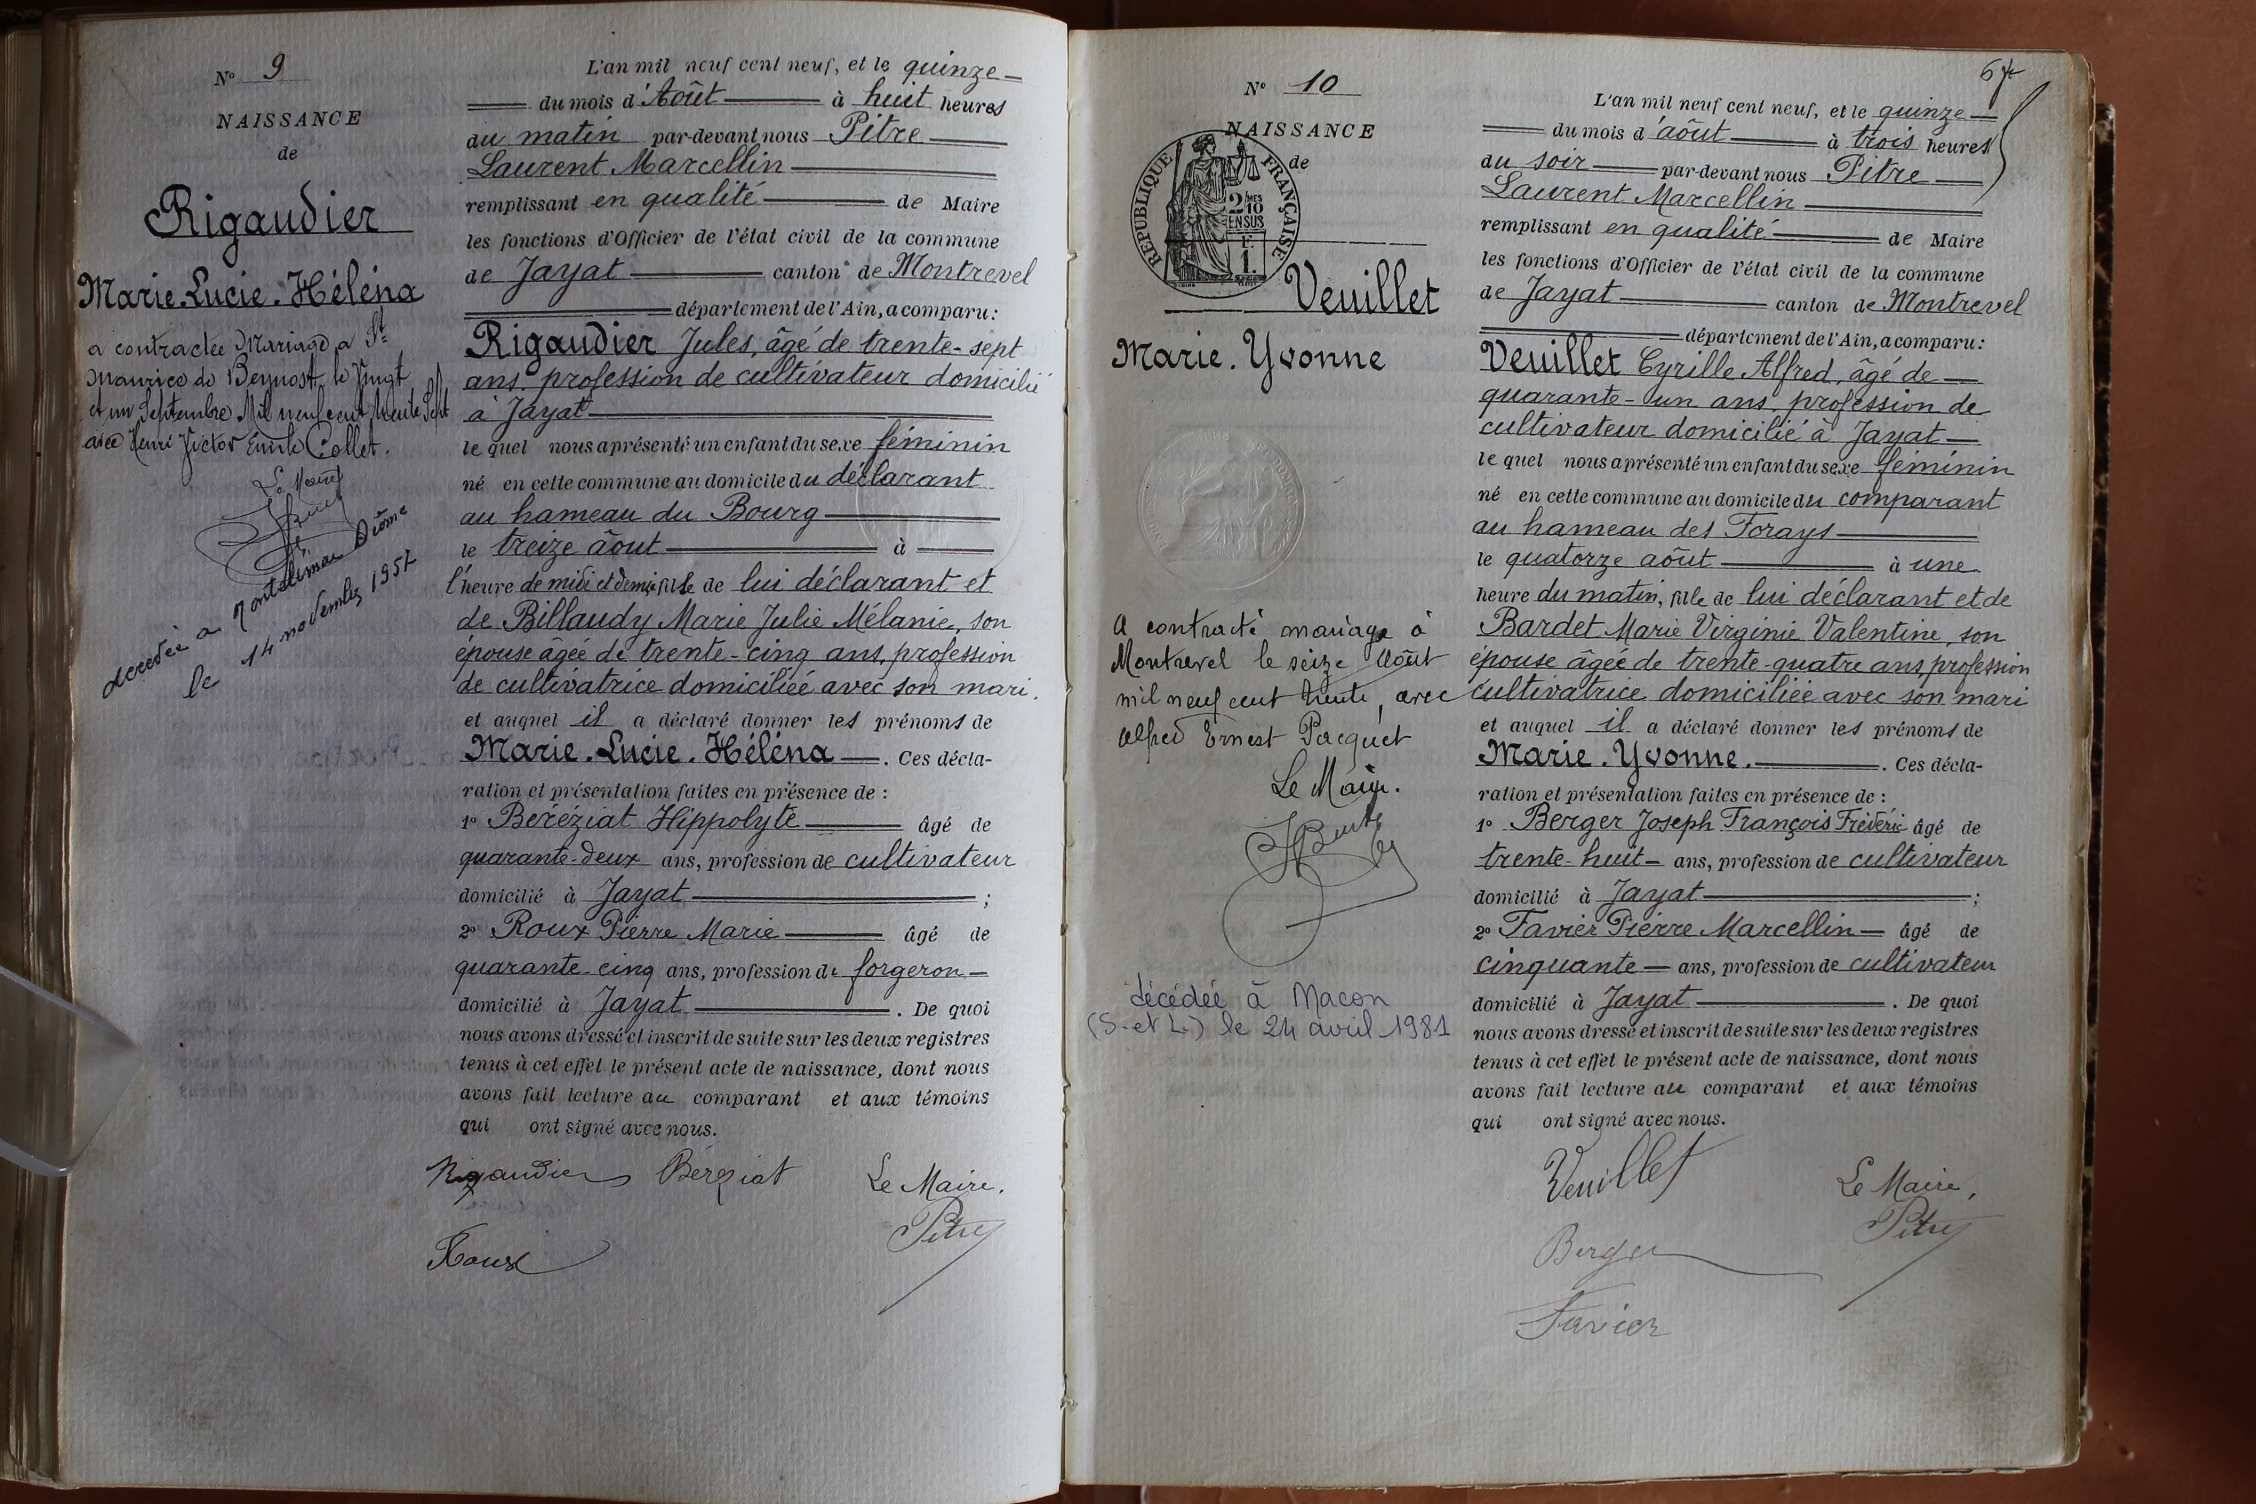 N° 9
NAISSANCE
de
Rigaudier
Marie. Lucie. Héléna
a contractée Mariage a St
Maurice de Beynost, le Vingt
et un Septembre Mil neuf cent trente Sept
avec Henri Victor Emile Collet.
Le Maire
décédée a Montélimar Drôme
le 14 novembre 1957
L'an mil neuf cent neuf, et le quinze
du mois d'Août à huit heures
du matin par-devant nous Pitre
Laurent Marcellin
remplissant en qualité de Maire
les fonctions d'Officier de l'état civil de la commune
de Jayat canton de Montrevel
département de l'Ain, a comparu:
Rigaudier Jules, âgé de trente-sept
ans, profession de cultivateur domicilié
à Jayat
le quel nous a présenté un enfant du sexe féminin
né en cette commune au domicile du déclarant
au hameau du Bourg
le treize août à
l'heure de midi et demie, fille de lui déclarant et
de Billaudy Marie Julie Mélanie, son
épouse âgée de trente-cinq ans, profession
de cultivatrice domiciliée avec son mari.
et auquel il a déclaré donner les prénoms de
Marie. Lucie. Héléna. Ces décla-
ration et présentation faites en présence de :
1° Béréziat Hippolyte âgé de
quarante-deux ans, profession de cultivateur
domicilié à Jayat ;
2° Roux Pierre Marie âgé de
quarante-cinq ans, profession de forgeron
domicilié à Jayat. De quoi
nous avons dressé et inscrit de suite sur les deux registres
tenus à cet effet le présent acte de naissance, dont nous
avons fait lecture au comparant et aux témoins
qui ont signé avec nous.
Rigaudier Béréziat Le Maire,
Pitre
Roux
67
N° 10
NAISSANCE
de
RÉPUBLIQUE FRANÇAISE
2/10 MES
EN SUS
1 F.
Veuillet
Marie. Yvonne
A contracté mariage à
Montrevel le seize Août
mil neuf cent trente, avec
Alfred Ernest Pacquet
Le Maire.
décédée à Macon
(S-et L.) le 24 avril 1981
L'an mil neuf cent neuf, et le quinze
du mois d'août à trois heures
du soir par-devant nous Pitre
Laurent Marcellin
remplissant en qualité de Maire
les fonctions d'Officier de l'état civil de la commune
de Jayat canton de Montrevel
département de l'Ain, a comparu:
Veuillet Cyrille Alfred, âgé de
quarante-un ans, profession de
cultivateur domicilié à Jayat
le quel nous a présenté un enfant du sexe féminin
né en cette commune au domicile du comparant
au hameau des Forays
le quatorze août à une
heure du matin, fille de lui déclarant et de
Bardet Marie Virginie Valentine, son
épouse âgée de trente-quatre ans, profession
cultivatrice domiciliée avec son mari
et auquel il a déclaré donner les prénoms de
Marie. Yvonne. Ces décla-
ration et présentation faites en présence de :
1° Berger Joseph François Fréderic âgé de
trente-huit ans, profession de cultivateur
domicilié à Jayat ;
2° Favier Pierre Marcellin âgé de
cinquante ans, profession de cultivateur
domicilié à Jayat. De quoi
nous avons dressé et inscrit de suite sur les deux registres
tenus à cet effet le présent acte de naissance, dont nous
avons fait lecture au comparant et aux témoins
qui ont signé avec nous.
Veuillet Le Maire,
Berger Pitre
Favier